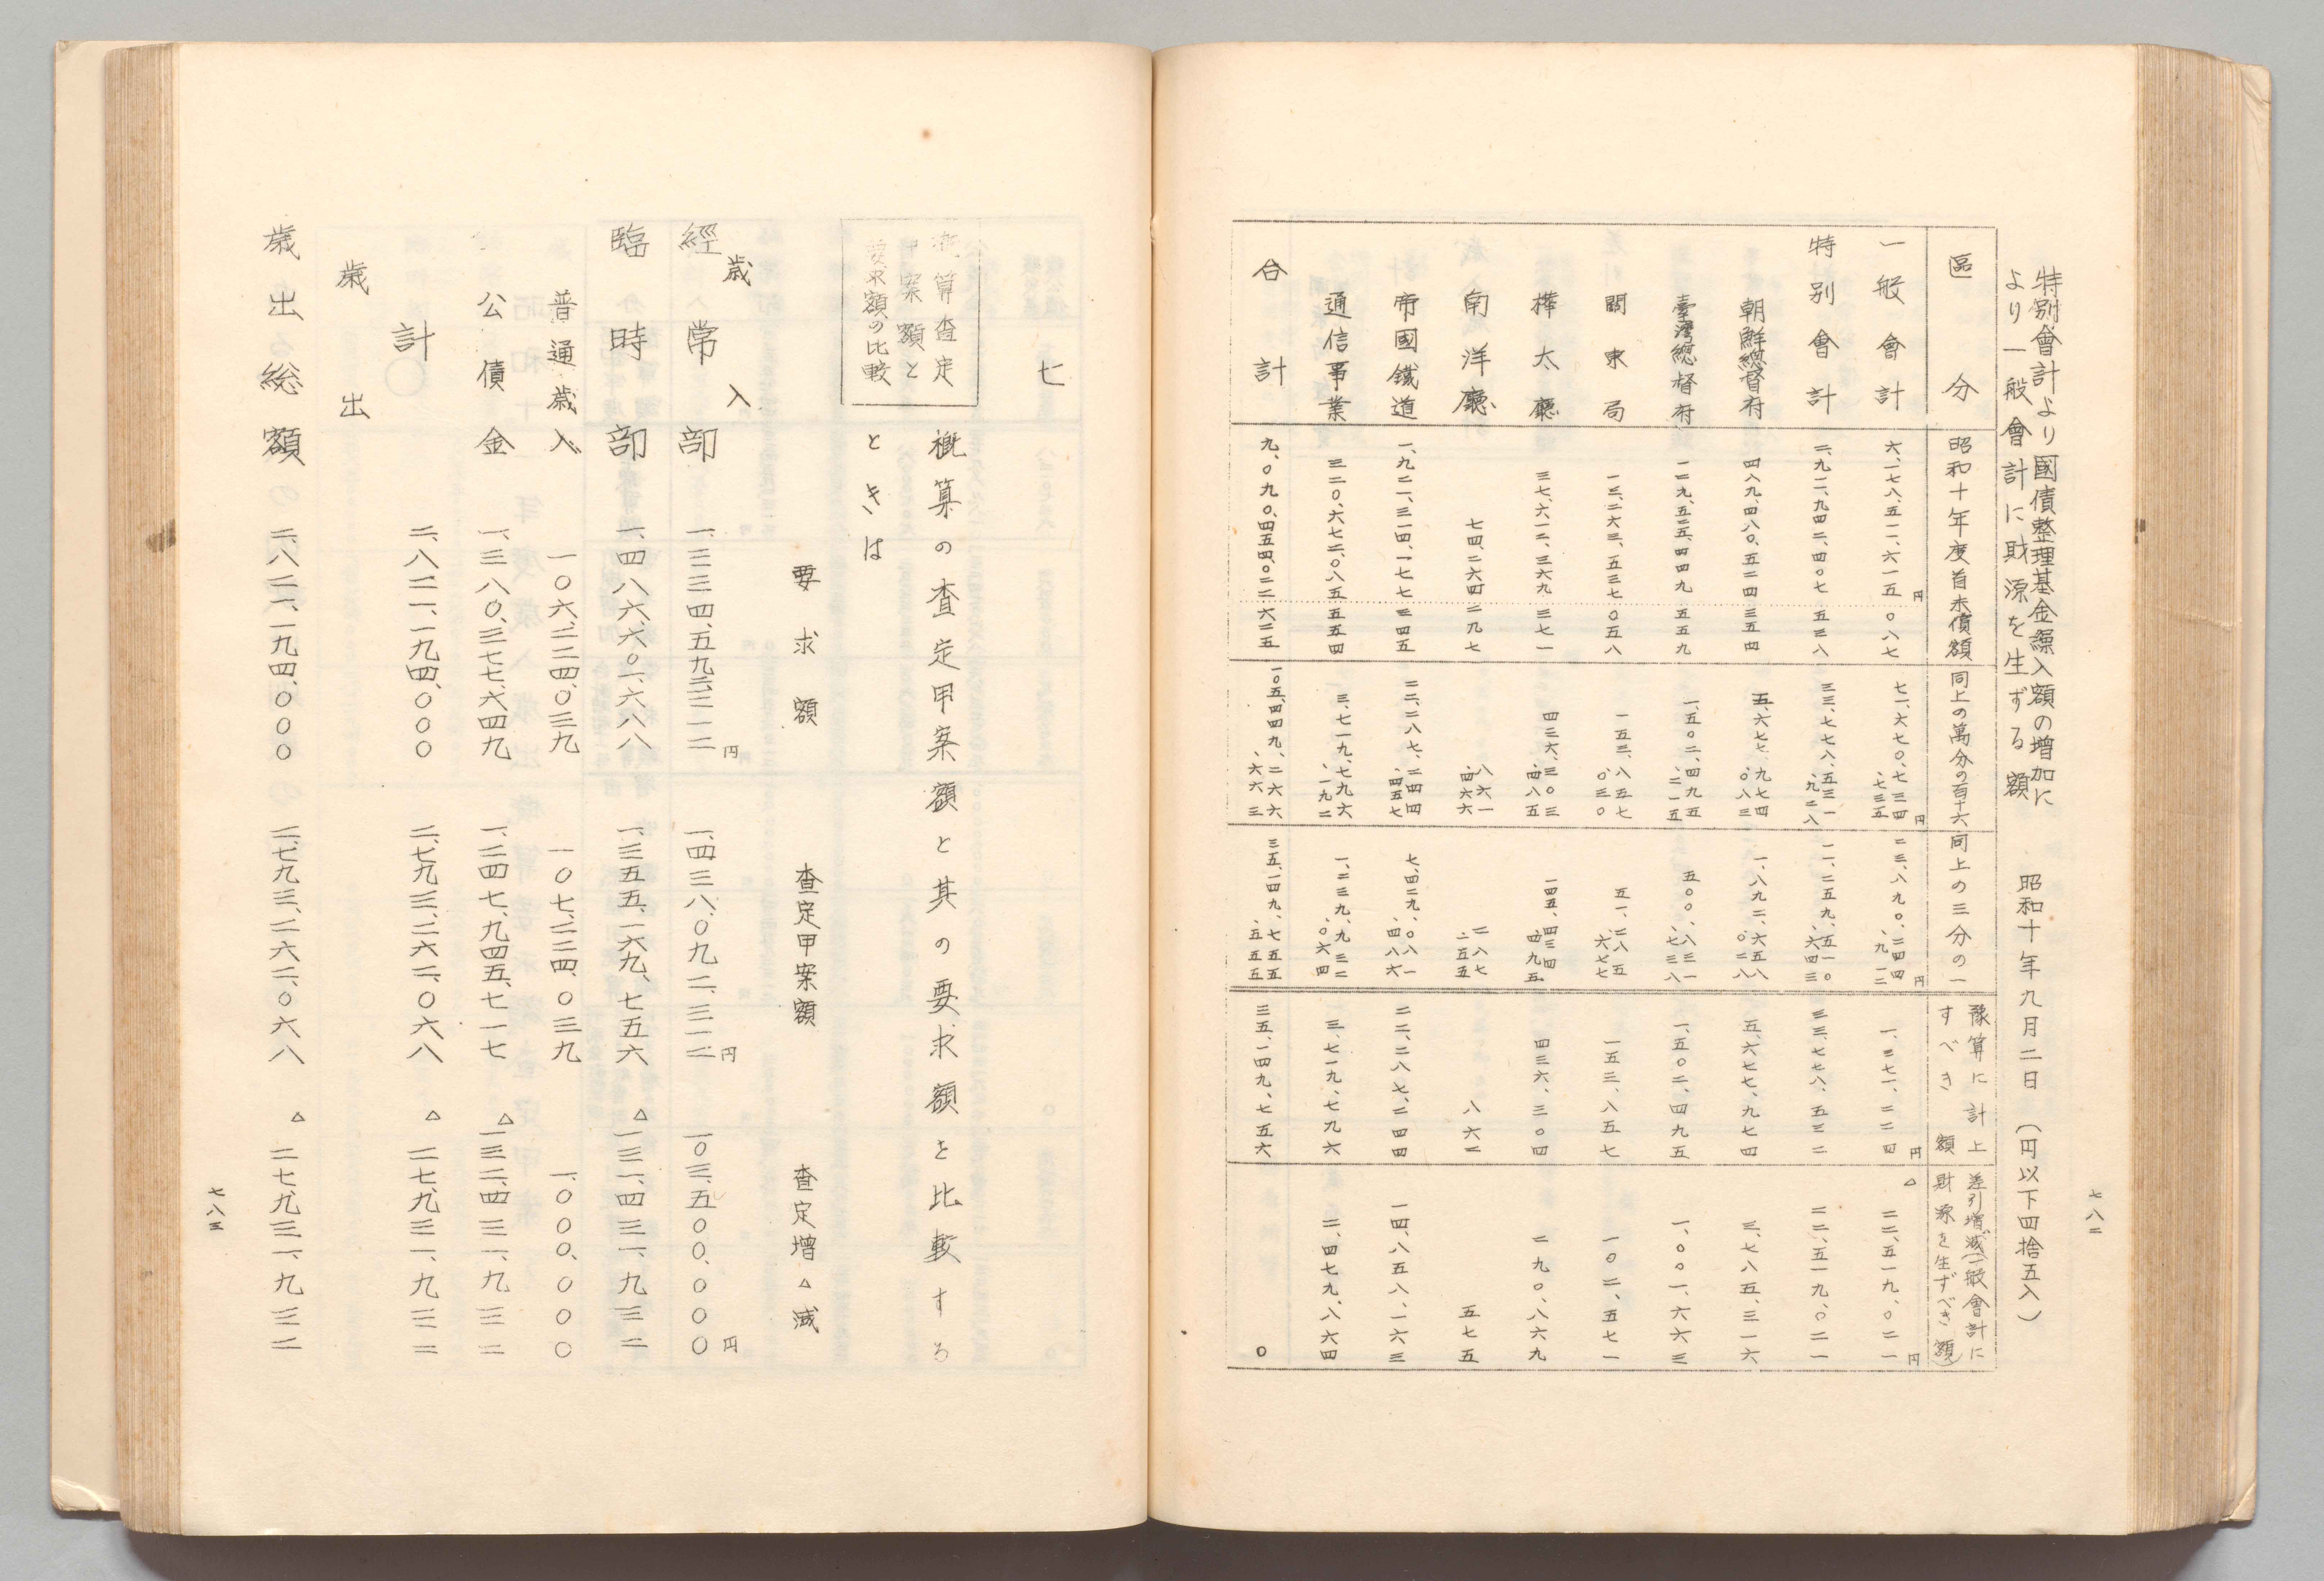 七八二
特別會計より國債整理基金繰入額の増加に
より一般會計に財源を生ずる額 昭和十年九月二日 (円以下四捨五入)
區分 昭和十年度首未償額 同上の萬分の百十六 同上の三分の一 豫算に計上すべき額 差引増△減(一般會計に財源を生ずべき額)
一般會計 六、一七八、五一一、六一五円 〇八七 七一、六七〇、七三四円、七三五 二三、八九〇、二四四円、九一二 一、三七一、二二四円 △二二、五一九、〇二一円
特別會計 二、九一一、九四二、四〇七 五三八 三三、七七八、五三一、九二八 一一、二五九、五一〇、六四三 三三、七七八、五三二 二二、五一九、〇二一
朝鮮總督府 四八九、四八〇、五二四 三五四 五、六七七、九七四、〇八三 一、八九二、六五八、〇二八 五、六七七、九七四 三、七八五、三一六
臺灣總督府 一二九、五二五、四四九 五五九 一、五〇二、四九五、二一五 五〇〇、八三一、七三八 一、五〇二、四九五 一、〇〇一、六六三
關東局 一三、二六三、五三七 〇五八 一五三、八五七、〇三〇 五一、二八五、六七七 一五三、八五七 一〇二、五七一
樺太廳 三七、六一二、三六九 三七一 四三六、三〇三、四八五 一四五、四三四、四九五 四三六、三〇四 二九〇、八六九
南洋廳 七四、二六四 二九七 八六一、四六六 二八七、一五五 八六二 五七五
帝國鐵道 一、九二一、三一四、一七七 三四五 二二、二八七、二四四、四五七 七、四二九、〇八一、四八六 二二、二八七、二四四 一四、八五八、一六三
通信事業 三二〇、六七二、〇八五 五五四 三、七一九、七九六、一九二 一、二三九、九三二、〇六四 三、七一九、七九六 二、四七九、八六四
合計 九、〇九〇、四五四、〇二二 六二五 一〇五、四四九、二六六、六六三 三五、一四九、七五五、五五五 三五、一四九、七五六 〇
七
概算査定
甲案額と
要求額の比較
概算の査定甲案額と其の要求額と比較する
ときは
要求額 査定甲案額 査定増△減
歳入
經常部 一、三三四、五九二、三一二円 一、四三八、〇九二、三一二円 一〇三、五〇〇、〇〇〇円
臨時部 一、四八六、六〇一、六八八 一、三五五、一六九、七五六 △一三一、四三一、九三二
普通歳入 一〇六、二二四、〇三九 一〇七、二二四、〇三九 一、〇〇〇、〇〇〇
公債金 一、三八〇、三七七、六四九 一、二四七、九四五、七一七 △一三二、四三一、九三二
計 二、八二一、一九四、〇〇〇 二、七九三、二六二、〇六八 △二七、九三一、九三二
歳出
歳出総額 二、八二一、一九四、〇〇〇 二、七九三、二六二、〇六八 △二七、九三一、九三二
七八三